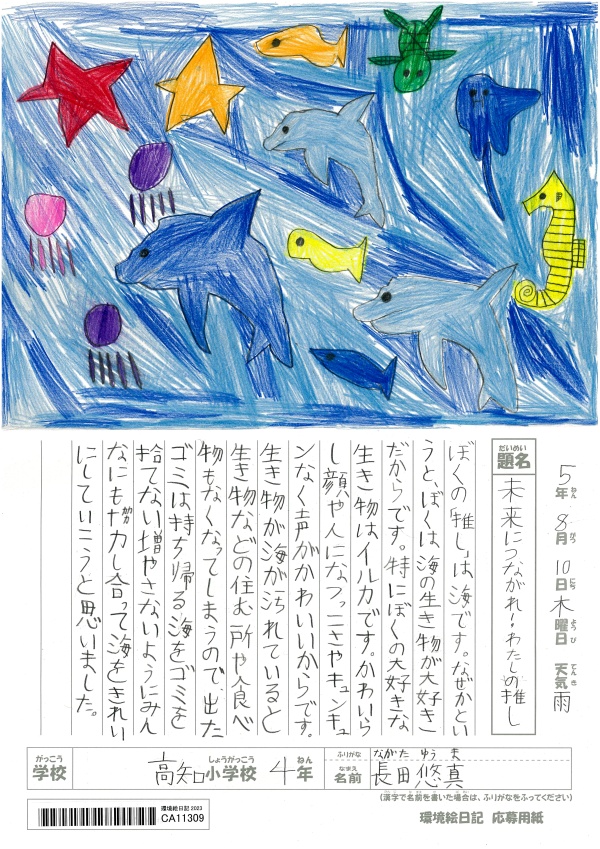 5年 8月 10日 木曜日 天気 雨
ねん がつ にち ようび てんき
だいめい
題名
未来につながれ!わたしの推し
ぼくの「推し」は、海です。なぜかとい
うと、ぼくは、海の生き物が大好き
だからです。特にぼくの大好きな
生き物はイルカです。かわいら
し顔や人になつっこさやキュンキュ
ンなく声がかわいいからです。
生き物が海が汚れていると
生き物などの住む所や食べ
物もなくなってしまうので、出た
ゴミは持ち帰る海をゴミを
捨てない増やさないようにみん
なにも協力し合って海をきれい
にしていこうと思いました。
がっこう しょうがっこう ねん
学校 高知小学校 4年
ふりがな ながた ゆうま
なまえ
名前 長田悠真
(漢字で名前を書いた場合は、ふりがなをふってください)
環境絵日記 2023
CA11309
環境絵日記 応募用紙